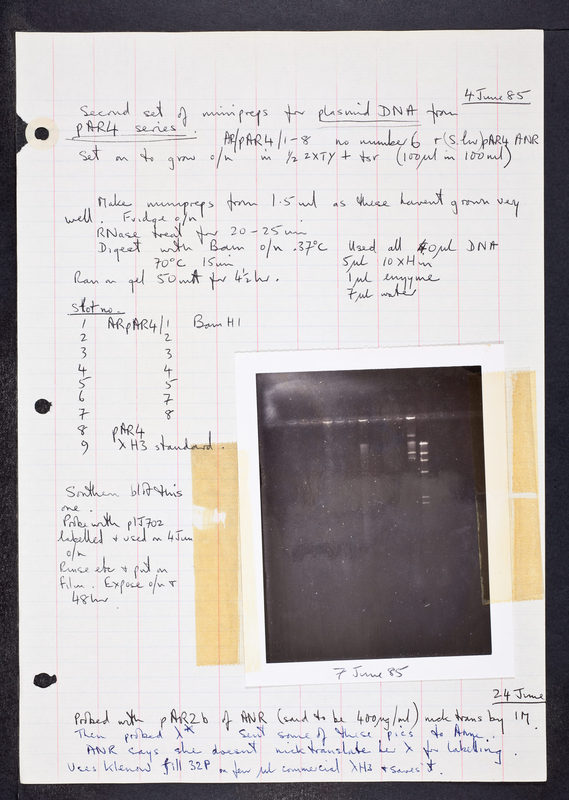 4 June 85
Second set of minipreps for plasmid DNA from
pAR4 series. AR/pAR4/1-8 no number 6 + (S. liv) pAR4 ANR
Set on to grow o/n in ½ 2XTY + tsr (100µl in 100ml)
Make minipreps from 1.5ml as these havent grown very
well. Fridge o/n
RNase treat for 20-25 min
Digest with Bam o/n 37°C Used all 40µl DNA
70°C 15min 5µl 10xHin
Ran on gel 50mA for 4½ hr. 1µl enzyme
7µl water
Slot no.
1 ARpAR4/1 Bam H1
2 2
3 3
4 4
5 5
6 7
7 8
8 pAR4
9 λH3 standard.
Southern blot this
one.
Probe with pIJ702
labelled & used on 4 Jun
o/n
Rinse etc & put on
film. Expose o/n &
48hr.
7 June 85
24 June
Probed with pAR2b of ANR (said to be 400µg/ml) nick trans by IM.
Then probed λ* Sent some of these pics to Anne.
ANR says she doesn't nick translate her λ for labelling.
Uses Klenow fill 32P on few µl commercial λH3 & saves it.